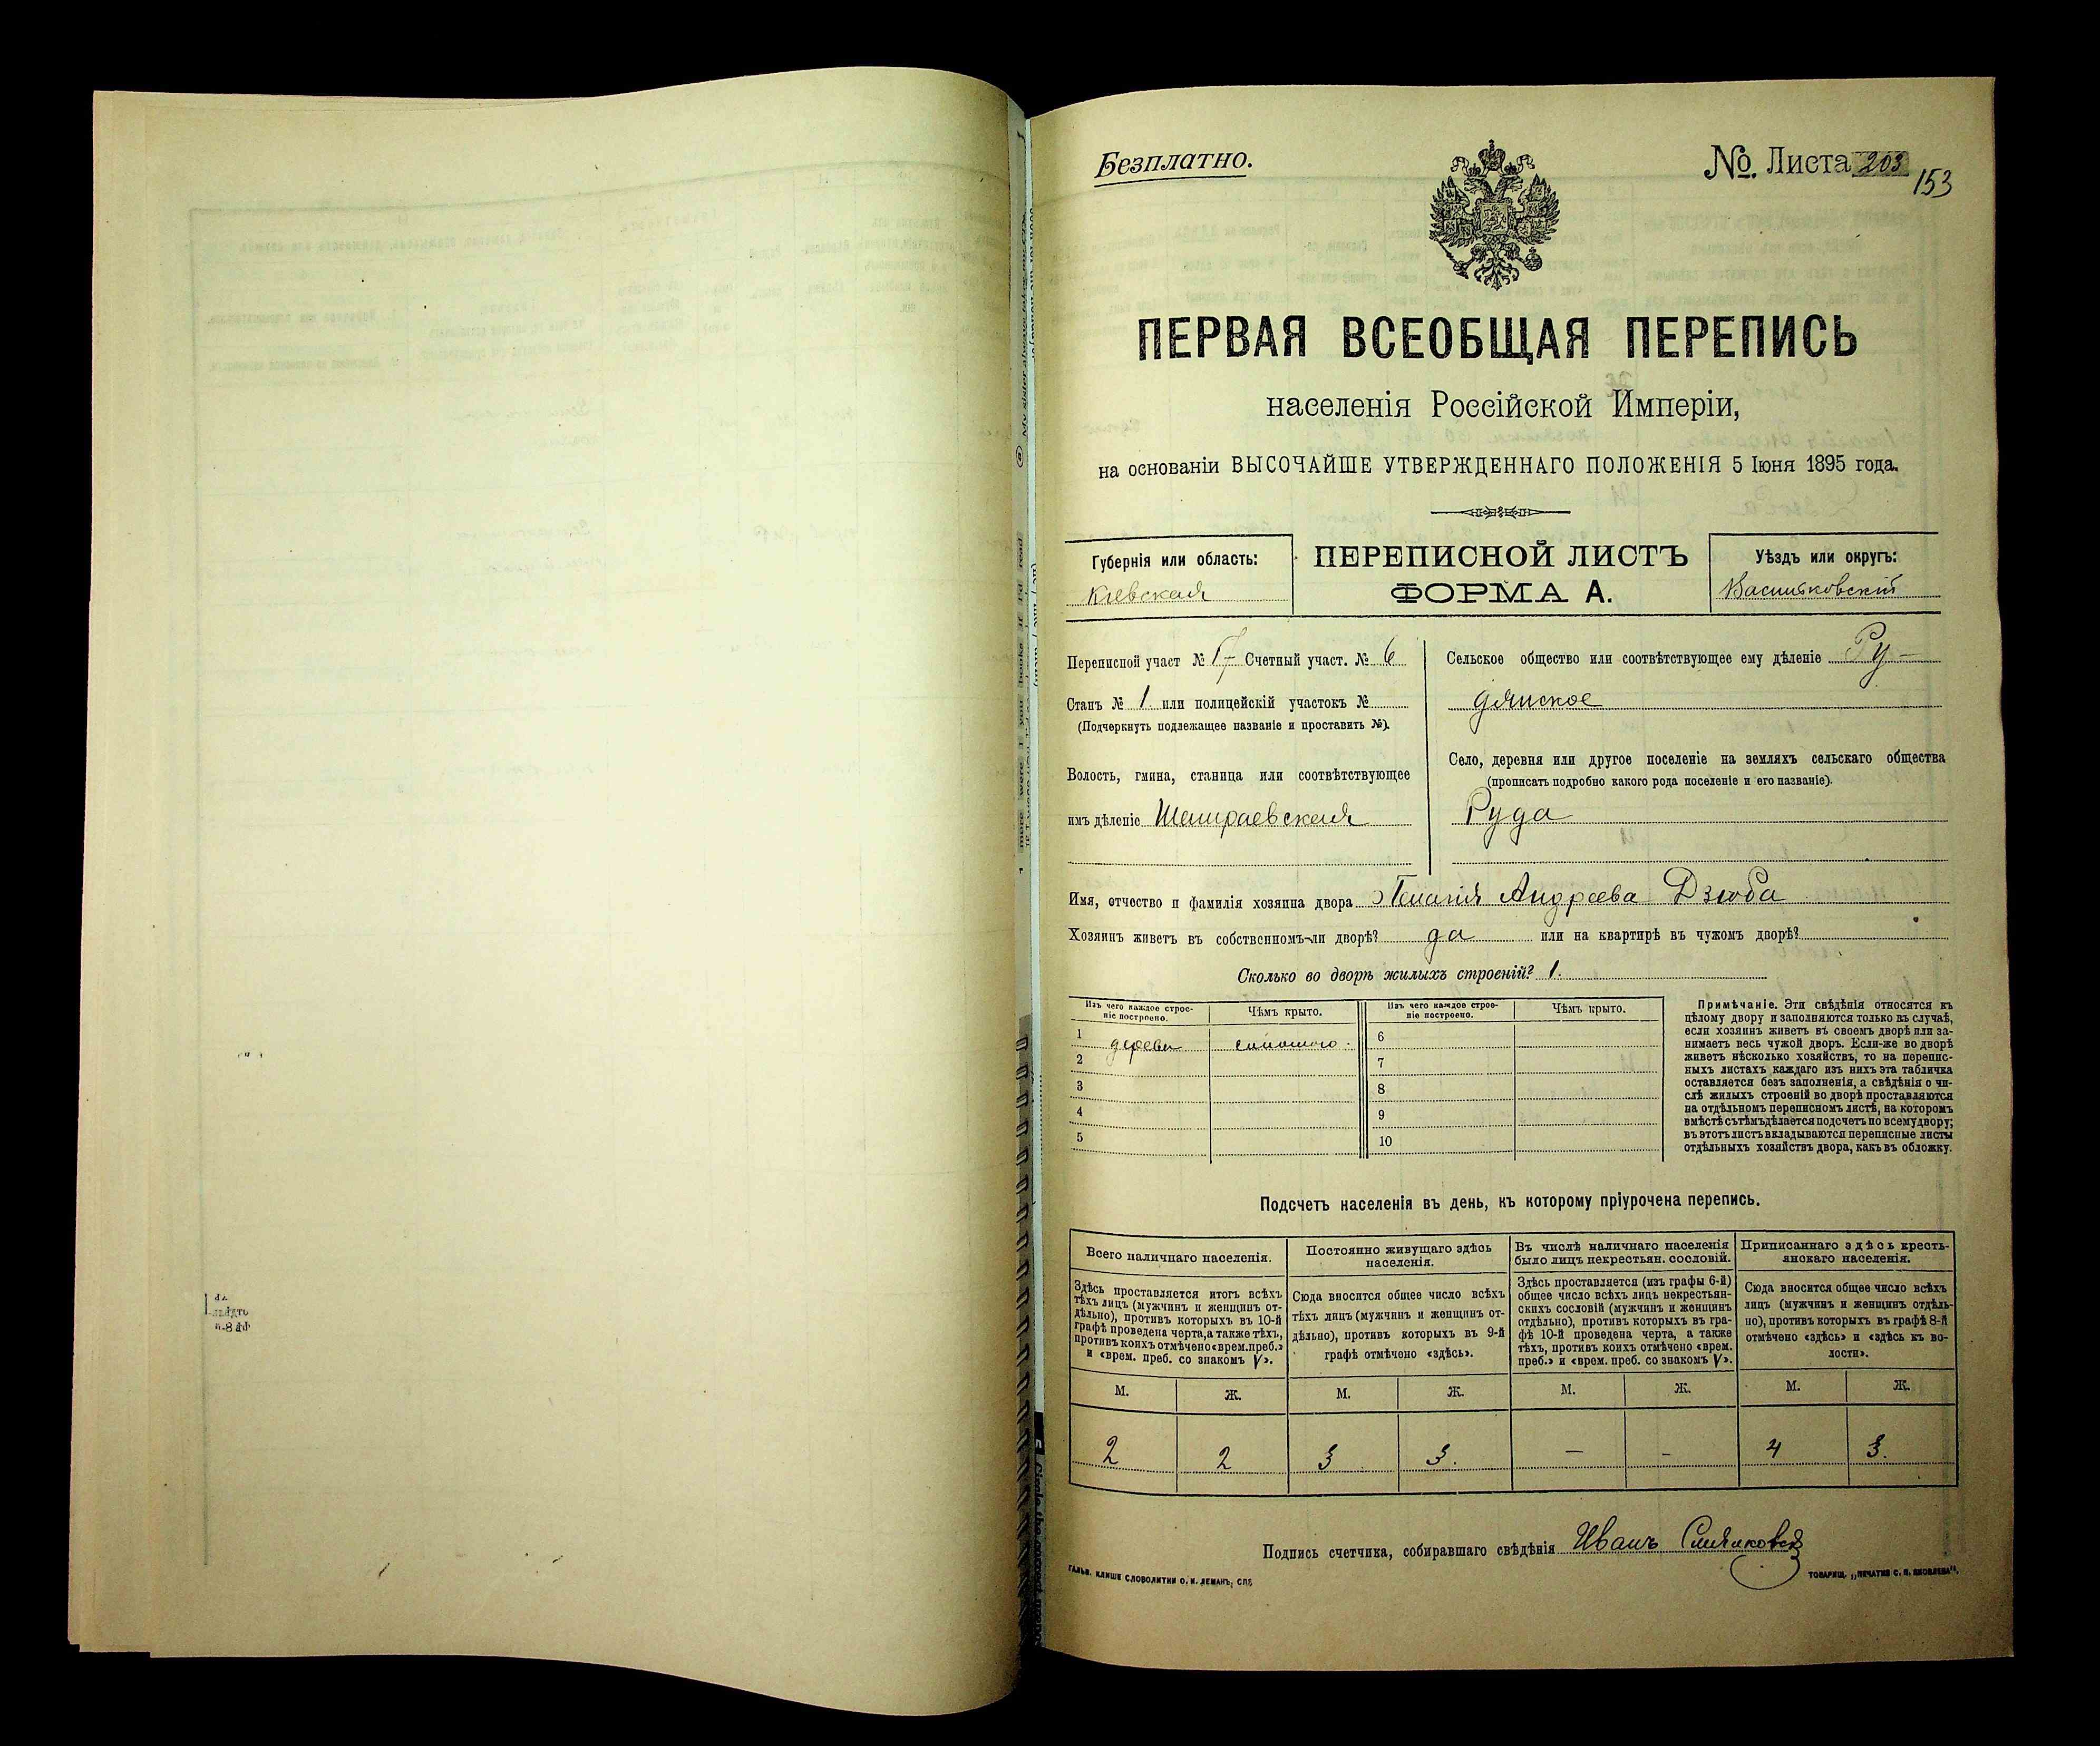 Безплатно.
№. Листа 203
153
ПЕРВАЯ ВСЕОБЩАЯ ПЕРЕПИСЬ
населенія Россійской Имперіи,
на основаніи ВЫСОЧАЙШЕ УТВЕРЖДЕННАГО ПОЛОЖЕНІЯ 5 Іюня 1895 года.
Губернія или область:
Кіевская
ПЕРЕПИСНОЙ ЛИСТЪ
ФОРМА А.
Уѣздъ или округъ:
Васильковскій
Переписной участ № Счетный участ. № 6
Станъ № 1. или полицейскій участокъ №
(Подчеркнуть подлежащее названіе и проставить №).
Волость, гмина, станица или соотвѣтствующее
имъ дѣленіе Шамраевская
Сельское общество или соотвѣтствующее ему дѣленіе Ру-
дянское
Село, деревня или другое поселеніе на земляхъ сельскаго общества
(прописать подробно какого рода поселеніе и его названіе).
Руда
Имя, отчество и фамилія хозяина двора Андреева Дзюба
Хозяинъ живетъ въ собственномъ-ли дворѣ? да или на квартирѣ въ чужомъ дворѣ?
Сколько во дворѣ жилыхъ строеній? 1.
Изъ чего каждое строе-
ніе построено.
Чѣмъ крыто.
Изъ чего каждое строе-
ніе построено.
Чѣмъ крыто.
1 дерева соломою.
2
3
4
5
6
7
8
9
10
Примѣчаніе. Эти свѣдѣнія относятся къ
цѣлому двору и заполняются только въ случаѣ,
если хозяинъ живетъ въ своемъ дворѣ или за-
нимаетъ весь чужой дворъ. Если-же во дворѣ
живетъ нѣсколько хозяйствъ, то на перепис-
ныхъ листахъ каждаго изъ нихъ эта табличка
оставляется безъ заполненія, а свѣдѣнія о чи-
слѣ жилыхъ строеній во дворѣ проставляются
на отдѣльномъ переписномъ листѣ, на которомъ
вмѣстѣ съ тѣмъ дѣлается подсчетъ по всему двору;
въ этотъ листъ вкладываются переписные листы
отдѣльныхъ хозяйствъ двора, какъ въ обложку.
Подсчетъ населенія въ день, къ которому пріурочена перепись.
Всего наличнаго населенія.
Здѣсь проставляется итогъ всѣхъ
тѣхъ лицъ (мужчинъ и женщинъ от-
дѣльно), противъ которыхъ въ 10-й
графѣ проведена черта, а также тѣхъ,
противъ коихъ отмѣчено «врем. преб.»
и «врем. преб. со знакомъ V».
Постоянно живущаго здѣсь
населенія.
Сюда вносится общее число всѣхъ
тѣхъ лицъ (мужчинъ и женщинъ от-
дѣльно), противъ которыхъ въ 9-й
графѣ отмѣчено «здѣсь».
Въ числѣ наличнаго населенія
было лицъ некрестьян. сословій.
Здѣсь проставляется (изъ графы 6-й)
общее число всѣхъ лицъ некрестьян-
скихъ сословій (мужчинъ и женщинъ
отдѣльно), противъ которыхъ въ гра-
фѣ 10-й проведена черта, а также
тѣхъ, противъ коихъ отмѣчено «врем.
преб.» и «врем. преб. со знакомъ V».
Приписаннаго здѣсь кресть-
янскаго населенія.
Сюда вносится общее число всѣхъ
лицъ (мужчинъ и женщинъ отдѣль-
но), противъ которыхъ въ графѣ 8-й
отмѣчено «здѣсь» и «здѣсь къ во-
лости».
М. Ж. М. Ж. М. Ж. М. Ж.
2 2 3 3. — - 4 3.
Подпись счетчика, собиравшаго свѣдѣнія Иванъ
ГАЛЬВ. КЛИШЕ СЛОВОЛИТНИ О. И. ЛЕМАНЪ, СПБ.
ТОВАРИЩ. „ПЕЧАТНЯ С. П. ЯКОВЛЕВА".